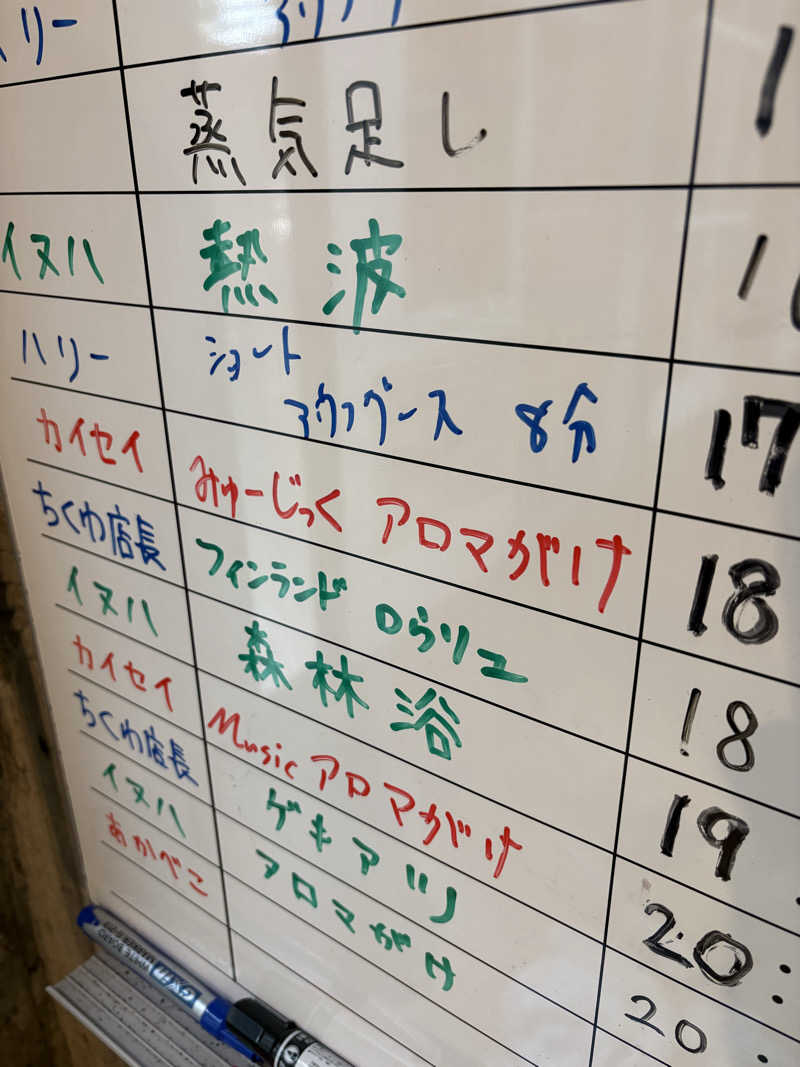 リー
蒸気足し 1
イヌハ 熱波 1
ハリー ショート
アウフグース 8分 17
カイセイ みゅーじっく アロマがけ 18
ちくわ店長 フィンランド ロウリュ 18
イヌハ 森林浴 19
カイセイ Music アロマがけ 20:
ちくわ店長 ゲキアツ 20:
イヌハ アロマがけ
あかべこ
WHITE BOARD